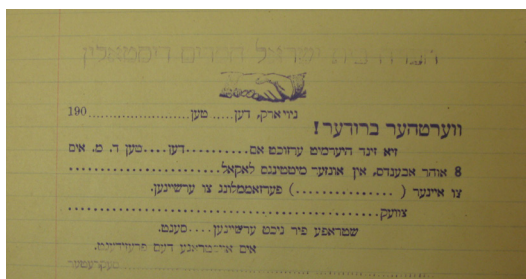 חברה בית ישראל חסדים דיסטאלין
ניויארק, דען.... טען...................... 190
ווערטהער ברודער!
זיא זינד היערמיט ערזוכט אם..........דען....טען ד. מ. אום
8 אוהר אבענדס, אין אונזער מיטטינגס לאקאל..................
צו איינער ( .............. ) פערזאממלונג צו ערשיינען.
צוועק..................................................
שטראפע פיר ניכט ערשיינען....סענט.
אים אויפטראגע דעס פרעזידענט,
סעקרעטער